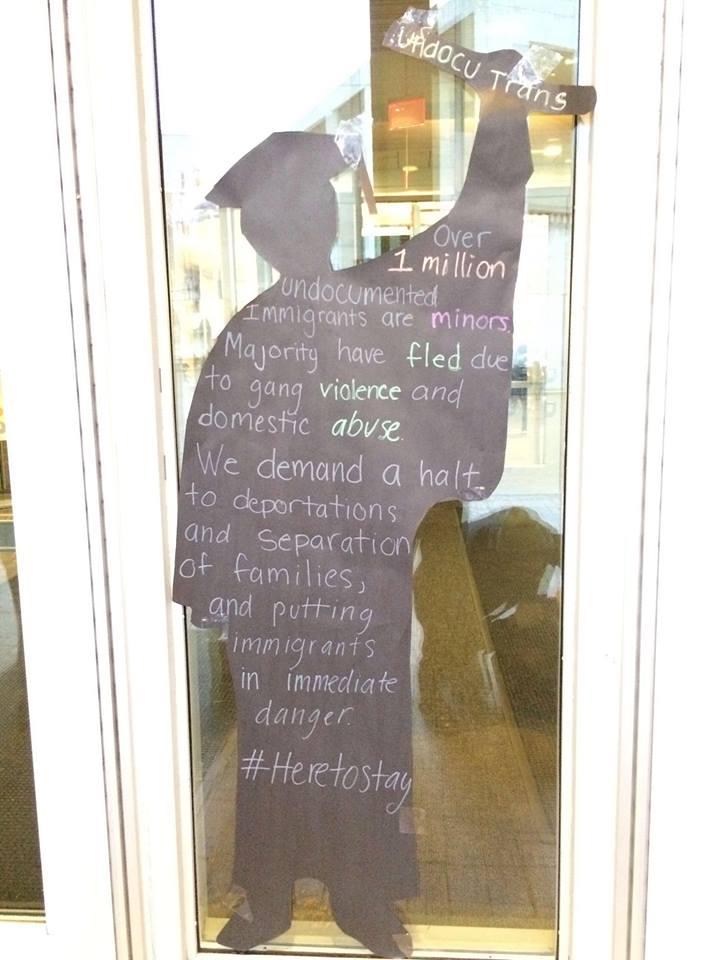 Undocu Trans
Over
1 million
undocumented
Immigrants are minors.
Majority have fled due
to gang violence and
domestic abuse.
We demand a halt
to deportations
and separation
of families,
and putting
immigrants
in immediate
danger.
#Heretostay